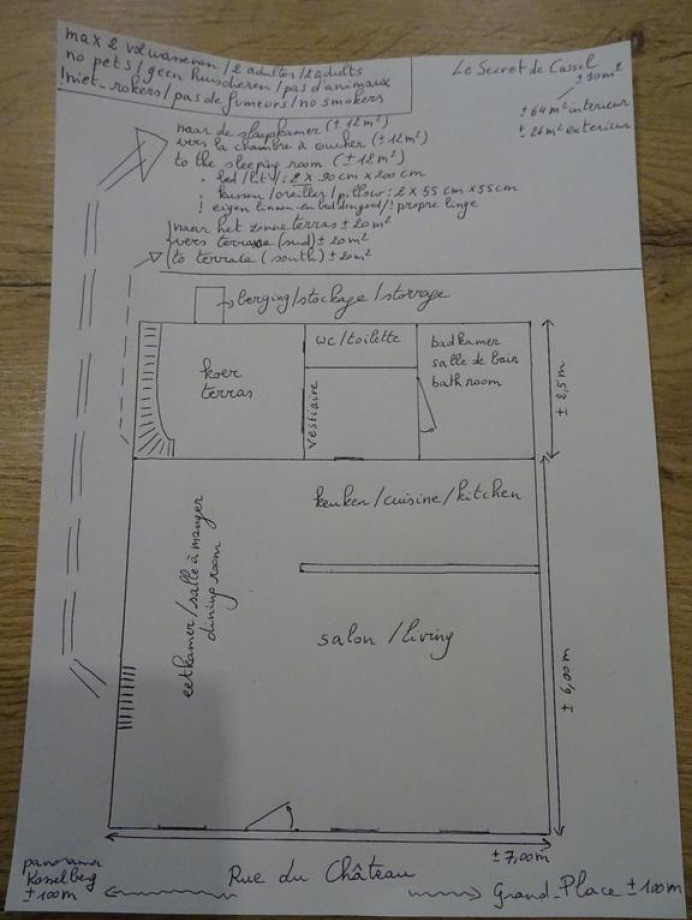 max 2 volwassenen / 2 adultes / 2 adults
no pets / geen huisdieren / pas d'animaux
! niet-rokers / pas de fumeurs / no smokers
Le Secret de Cassel
± 90 m²
± 64 m² interieur
± 26 m² exterieur
naar de slaapkamer (± 12 m²)
vers la chambre à coucher (± 12 m²)
to the sleeping room (± 12 m²)
. bed / lit / : 2 x 90 cm x 200 cm
. kussen / oreiller / pillow : 2 x 55 cm x 55 cm
! eigen linnen- en beddengoed / ! propre linge
naar het zonneterras ± 20 m²
vers terrasse (sud) ± 20 m²
to terrace (south) ± 20 m²
berging / stockage / storrage
koer
terras
wc / toilette
vestiaire
badkamer
salle de bain
bathroom
± 2,5 m
keuken / cuisine / kitchen
eetkamer / salle à manger
dining room
salon / living
± 6,00 m
± 7,00 m
panorama
Kasselberg
± 100 m
Rue du Château
Grand-Place ± 100 m